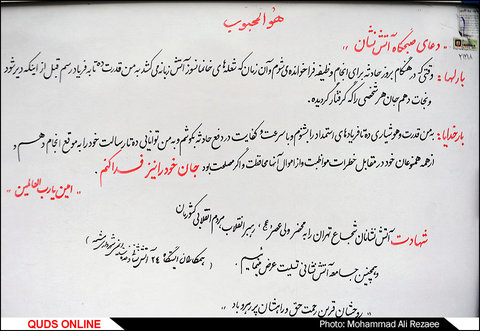 هو المحبوب
« دعای صبحگاه آتش نشان »
بارالها : وقتی که در هنگام بروز حادثه برای انجام وظیفه فراخوانده می شوم و آن زمان که شعله های خانمانسوز آتش زبانه می کشد به من قدرت ده تا به فریاد رسم قبل از اینکه دیر شود
و نجات دهم جان هر شخصی را که گرفتار گردیده .
بارخدایا : به من قدرت و هوشیاری ده تا فریادهای استمداد را بشنوم و با سرعت و کفایت در دفع حادثه بکوشم و به من توانایی ده تا رسالت خود را به موقع انجام دهم و
از همه همنوعان خود در مقابل خطرات مواظبت و از اموال آنها محافظت و اگر مصلحت بود جان خود را نیز فدا کنم .
« آمین یا رب العالمین »
شهادت آتش نشانان شجاع تهران را به محضر ولی عصر (عج) ، رهبر انقلاب ، مردم انقلابی کشورمان
و همچنین جامعه آتش نشانی تسلیت عرض می نمائیم .
( همکارانتان ایستگاه ۲۴ آتش نشانی
روحشان قرین رحمت حق و راهشان پر رهرو باد
QUDS ONLINE
Photo: Mohammad Ali Rezaee